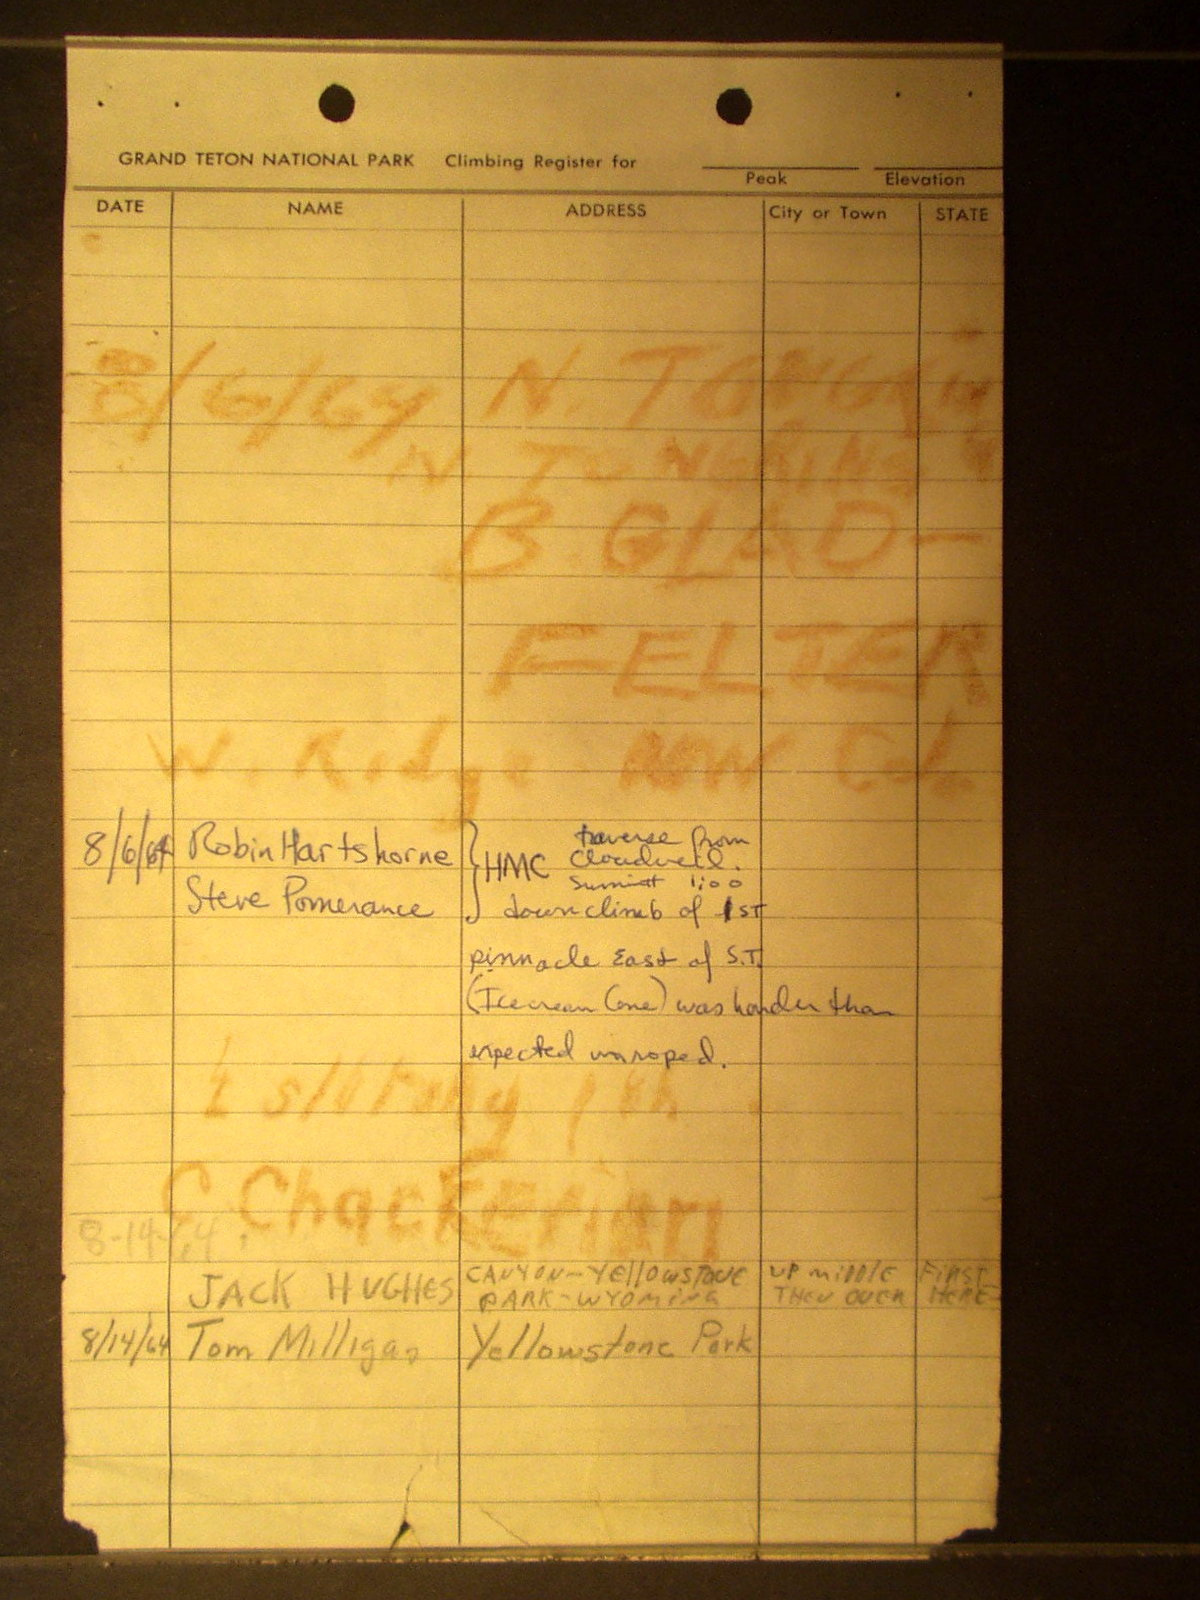 GRAND TETON NATIONAL PARK Climbing Register for
Peak Elevation
DATE NAME ADDRESS City or Town STATE
8/6/64 N.
N
B. GLAD-
FELTER
W. Ridge. NW Col.
8/6/64 Robin Hartshorne HMC traverse from
Cloudveil.
Summit 1:00
Steve Pomerance downclimb of 1ST
pinnacle East of S.T.
(Icecream Cone) was harder than
expected unroped.
C. Chackerian
8-14-64.
JACK HUGHES CANYON-YELLOWSTONE UP MIDDLE FIRST
PARK-WYOMING THEN OVER HERE
8/14/64 Tom Milligan Yellowstone Park